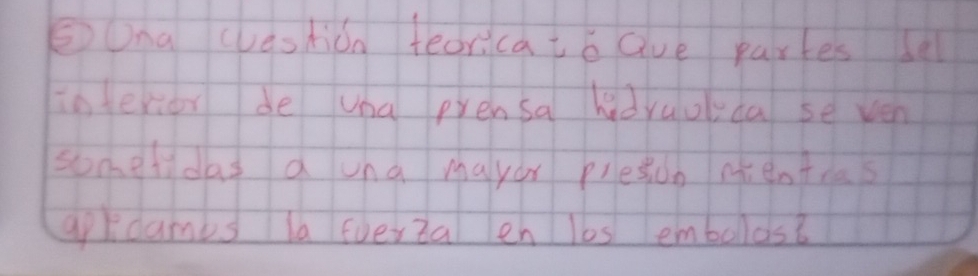 ⑤ Una cuestión teorica: ¿Que partes del
interior de una prensa hidraulica se ven
sometidas a una mayor presión mientras
aplicamos la fuerza en los embolos?